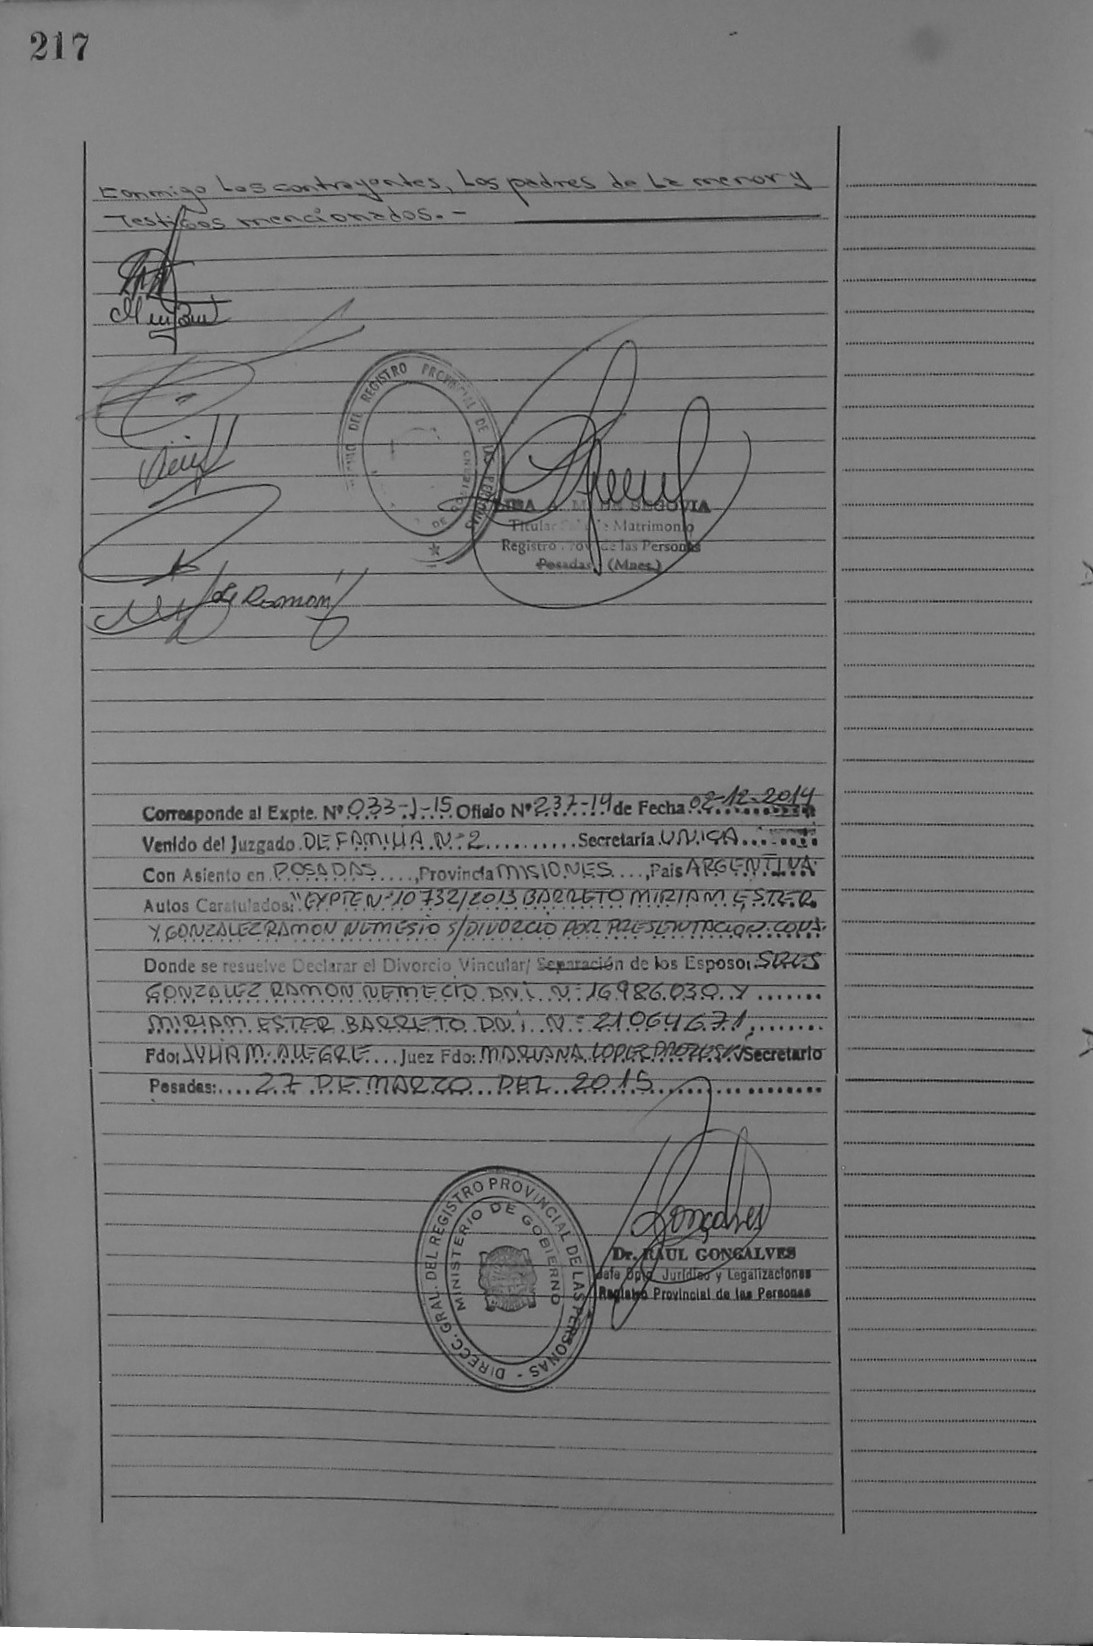 217
conmigo los contrayentes, los padres de la menor y
Testigos mencionados. -
DEL REGISTRO PROVINCIAL DE LAS PERSONAS
DE SEGOVIA
Titular Matrimonio
Registro Prov. de las Personas
Posadas (Mnes.)
Ramón
Corresponde al Expte. Nº 033-J-15 Oficio Nº 237-14 de Fecha 02-12-2014
Venido del Juzgado DE FAMILIA Nº 2 Secretaría UNICA
Con Asiento en POSADAS, Provincia MISIONES, Pais ARGENTINA
Autos Caratulados: "EXPTE Nº 10732/2013 BARRETO MIRIAM ESTER
Y GONZALEZ RAMON NEMESIO S/DIVORCIO POR PRESENTACION CONJ.
Donde se resuelve Declarar el Divorcio Vincular/ Separación de los Esposo: SRES
GONZALEZ RAMON NEMECIO D.N.I. Nº 16.986.030 Y
MIRIAM ESTER BARRETO D.N.I. Nº 21064671,
Fdo: JULIA M. ALEGRE Juez Fdo: MARIANA LOPEZ /Secretario
Posadas: 27 DE MARZO DEL 2015
DIRECC. GRAL. DEL REGISTRO PROVINCIAL DE LAS PERSONAS -
MINISTERIO DE GOBIERNO
Gonçalves
Dr. RAUL GONCALVES
Jefe Dpto. Jurídico y Legalizaciones
Registro Provincial de las Personas